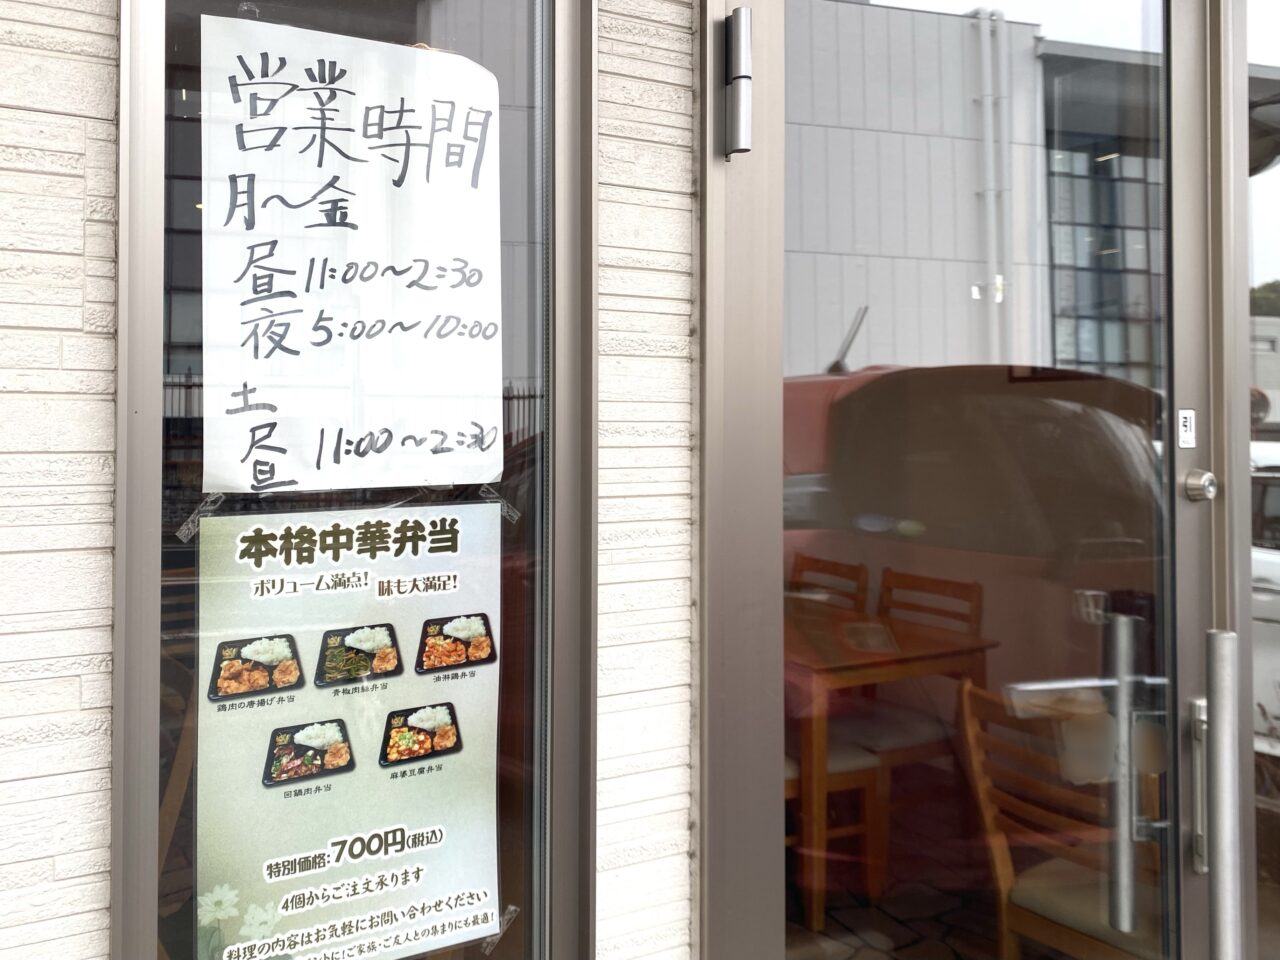 営業時間
月〜金
昼 11:00〜2:30
夜 5:00〜10:00
土
昼 11:00〜2:30
本格中華弁当
ボリューム満点! 味も大満足!
鶏肉の唐揚げ弁当
青椒肉絲弁当
油淋鶏弁当
回鍋肉弁当
麻婆豆腐弁当
特別価格:700円(税込)
4個からご注文承ります
料理の内容はお気軽にお問い合わせください
ントに!ご家族・ご友人との集まりにも最適!
引